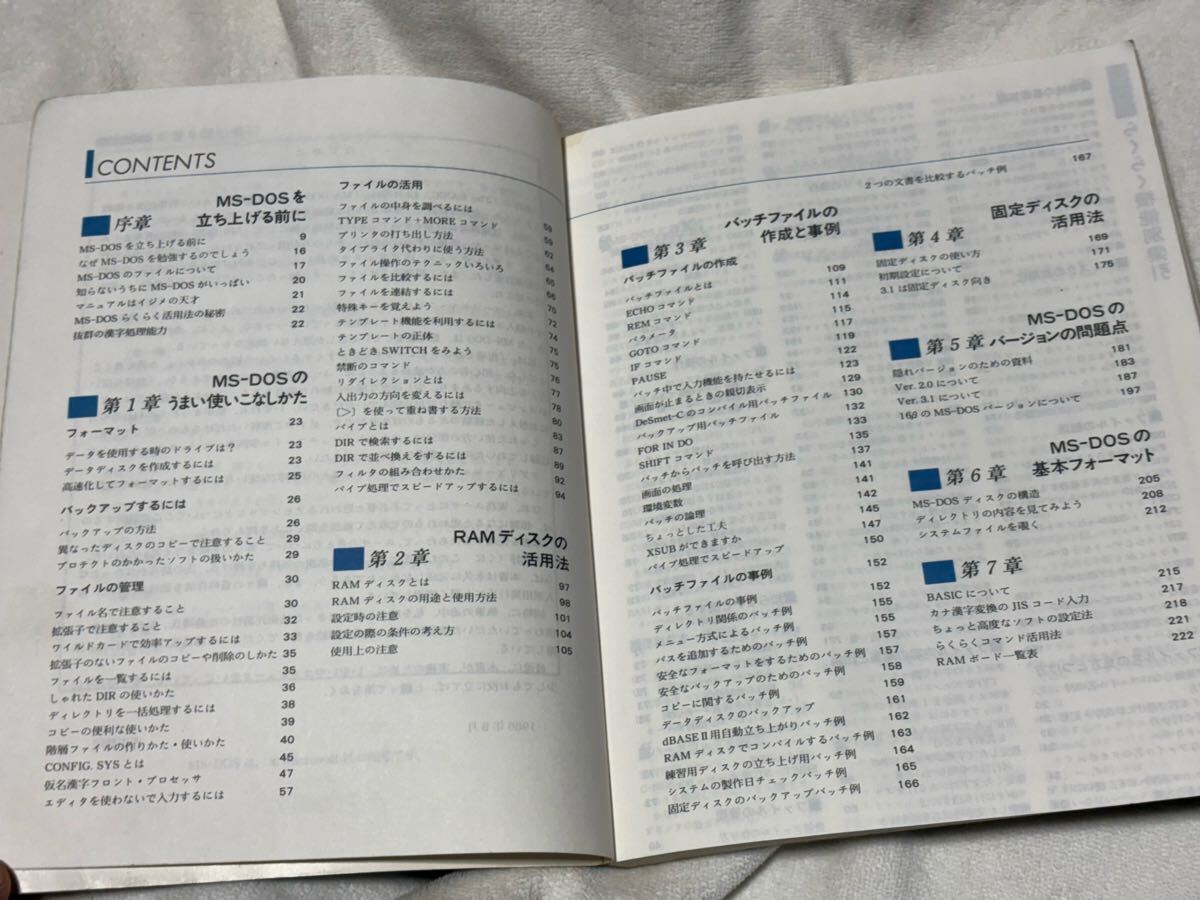 CONTENTS
MS-DOSを
序章 立ち上げる前に
MS-DOSを立ち上げる前に 9
なぜMS-DOSを勉強するのでしょう 16
MS-DOSのファイルについて 17
知らないうちにMS-DOSがいっぱい 20
マニュアルはイジメの天才 21
MS-DOSらくらく活用法の秘密 22
抜群の漢字処理能力 22
MS-DOSの
第1章 うまい使いこなしかた
フォーマット 23
データを使用する時のドライブは?
データディスクを作成するには 23
高速化してフォーマットするには 25
バックアップするには 26
バックアップの方法 26
異なったディスクのコピーで注意すること 29
プロテクトのかかったソフトの扱いかた 29
ファイルの管理 30
ファイル名で注意すること 30
拡張子で注意すること 32
ワイルドカードで効率アップするには 33
拡張子のないファイルのコピーや削除のしかた 35
ファイルを一覧するには 35
しゃれたDIRの使いかた 36
ディレクトリを一括処理するには 38
コピーの便利な使いかた 39
階層ファイルの作りかた・使いかた 40
CONFIG. SYSとは 45
仮名漢字フロント・プロセッサ 47
エディタを使わないで入力するには 57
ファイルの活用
ファイルの中身を調べるには
TYPEコマンド+MOREコマンド 59
プリンタの打ち出し方法 59
タイプライタ代わりに使う方法 62
ファイル操作のテクニックいろいろ 64
ファイルを比較するには 65
ファイルを連結するには 66
特殊キーを覚えよう 70
テンプレート機能を利用するには 72
テンプレートの正体 74
ときどきSWITCHをみよう 75
禁断のコマンド 75
リダイレクションとは 76
入出力の方向を変えるには 77
〔>〕を使って重ね書する方法 78
パイプとは 80
DIRで検索するには 83
DIRで並べ換えをするには 87
フィルタの組み合わせかた 89
パイプ処理でスピードアップするには 92
94
RAMディスクの
第2章 活用法
RAMディスクとは 97
RAMディスクの用途と使用方法 98
設定時の注意 101
設定の際の条件の考え方 104
使用上の注意 105
2つの文書を比較するバッチ例 167
バッチファイルの
第3章 作成と事例
バッチファイルの作成 109
バッチファイルとは 111
ECHOコマンド 114
REMコマンド 115
パラメータ 117
GOTOコマンド 119
IFコマンド 122
PAUSE 123
バッチ中で入力機能を持たせるには 129
画面が止まるときの親切表示 130
DeSmet-Cのコンパイル用バッチファイル 132
バックアップ用バッチファイル 133
FOR IN DO 135
SHIFTコマンド 137
バッチからバッチを呼び出す方法 141
画面の処理 141
環境変数 142
バッチの論理 145
ちょっとした工夫 147
XSUBができますか 150
パイプ処理でスピードアップ
バッチファイルの事例 152
バッチファイルの事例 152
ディレクトリ関係のバッチ例 155
メニュー方式によるバッチ例 155
パスを追加するためのバッチ例 157
安全なフォーマットをするためのバッチ例 157
安全なバックアップのためのバッチ例 158
コピーに関するバッチ例 159
データディスクのバックアップ 161
dBASEⅡ用自動立ち上がりバッチ例 162
RAMディスクでコンパイルするバッチ例 163
練習用ディスクの立ち上げ用バッチ例 164
システムの製作日チェックバッチ例 165
固定ディスクのバックアップバッチ例 166
固定ディスクの
第4章 活用法
固定ディスクの使い方 169
初期設定について 171
3.1は固定ディスク向き 175
MS-DOSの
第5章 バージョンの問題点
隠れバージョンのための資料 181
Ver. 2.0について 183
Ver. 3.1について 187
16βのMS-DOSバージョンについて 197
MS-DOSの
第6章 基本フォーマット
MS-DOSディスクの構造 205
ディレクトリの内容を見てみよう 208
システムファイルを覗く 212
第7章
BASICについて 215
カナ漢字変換のJISコード入力 217
ちょっと高度なソフトの設定法 218
らくらくコマンド活用法 221
RAMボード一覧表 222